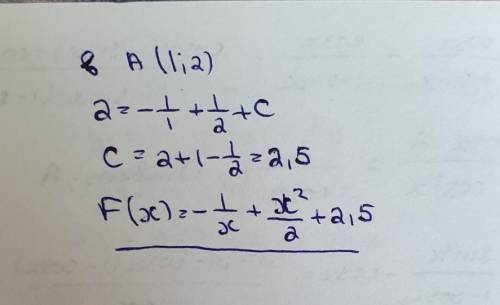 в A (1;2)
2 = -1/1 + 1/2 + C
C = 2+1-1/2 = 2,5
F(x) = -1/x + x²/2 + 2,5